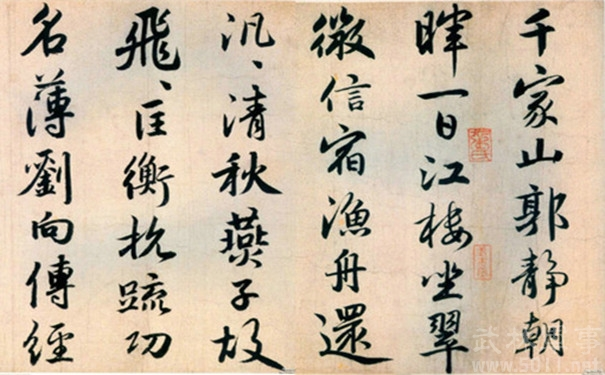 千家山郭靜朝
暉一日江樓坐翠
微信宿漁舟還
汎〻清秋燕子故
飛〻匡衡抗疏功
名薄劉向傳經
www.5011.net